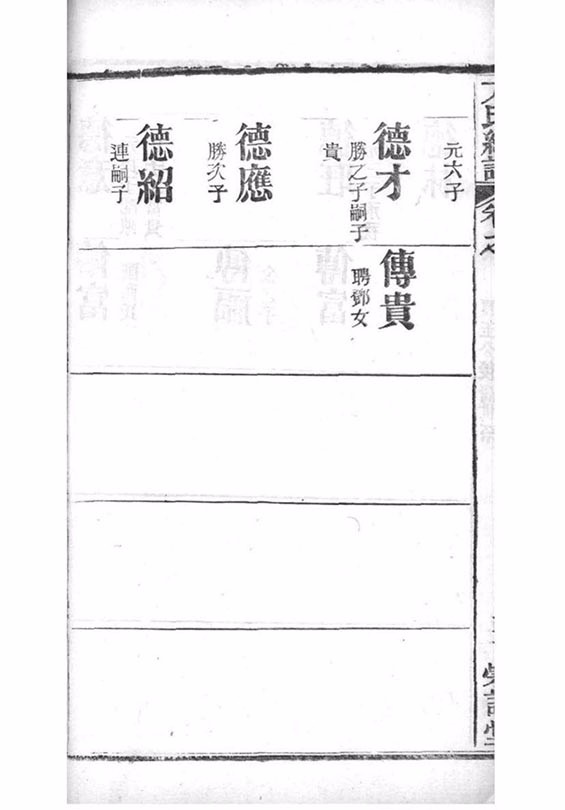 元六子
德才
勝乙子嗣子
貴
傳貴
聘鄧女
德應
勝次子
德紹
連嗣子